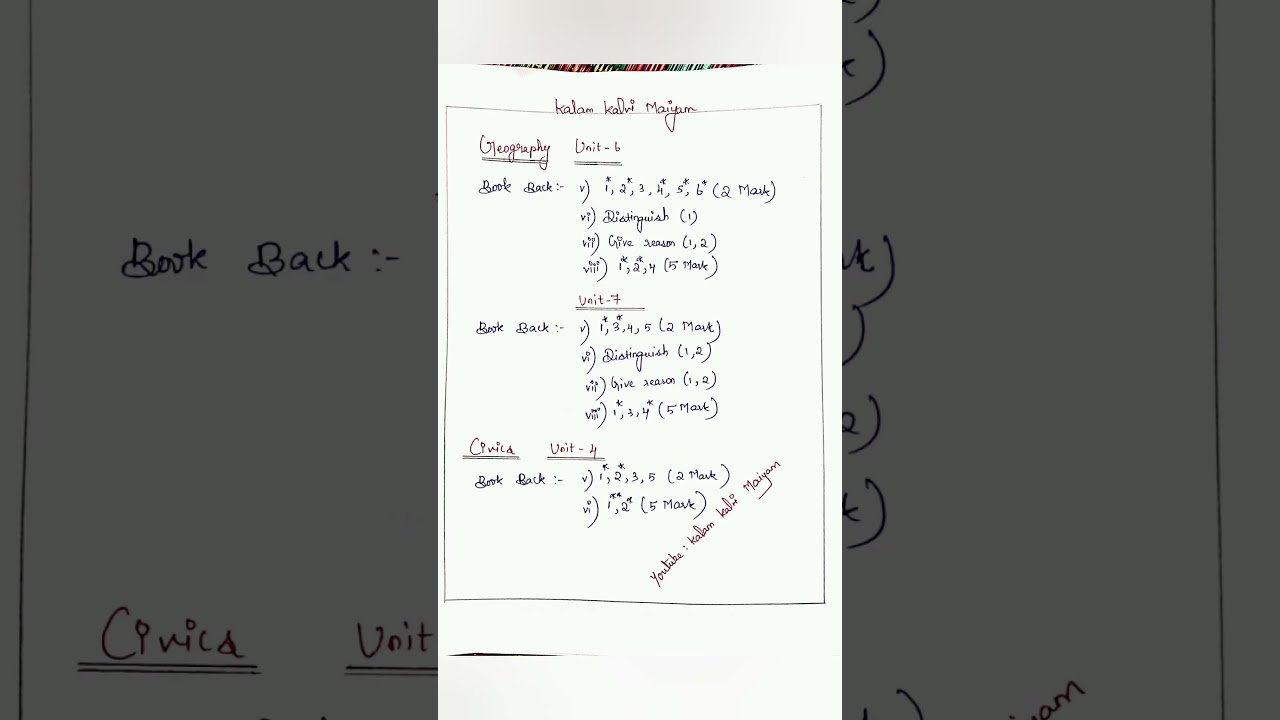 Kalam Kalvi Maiyam
Geography Unit-6
Book Back:- v) 1*, 2*, 3, 4*, 5*, 6* (2 Mark)
vi) Distinguish (1)
vii) Give reason (1,2)
viii) 1*, 2*, 4 (5 Mark)
Unit-7
Book Back:- v) 1*, 3*, 4, 5 (2 Mark)
vi) Distinguish (1,2)
vii) Give reason (1,2)
viii) 1*, 3, 4* (5 Mark)
Civics Unit-4
Book Back:- v) 1*, 2*, 3, 5 (2 Mark)
vi) 1**, 2* (5 Mark)
Youtube: Kalam Kalvi Maiyam